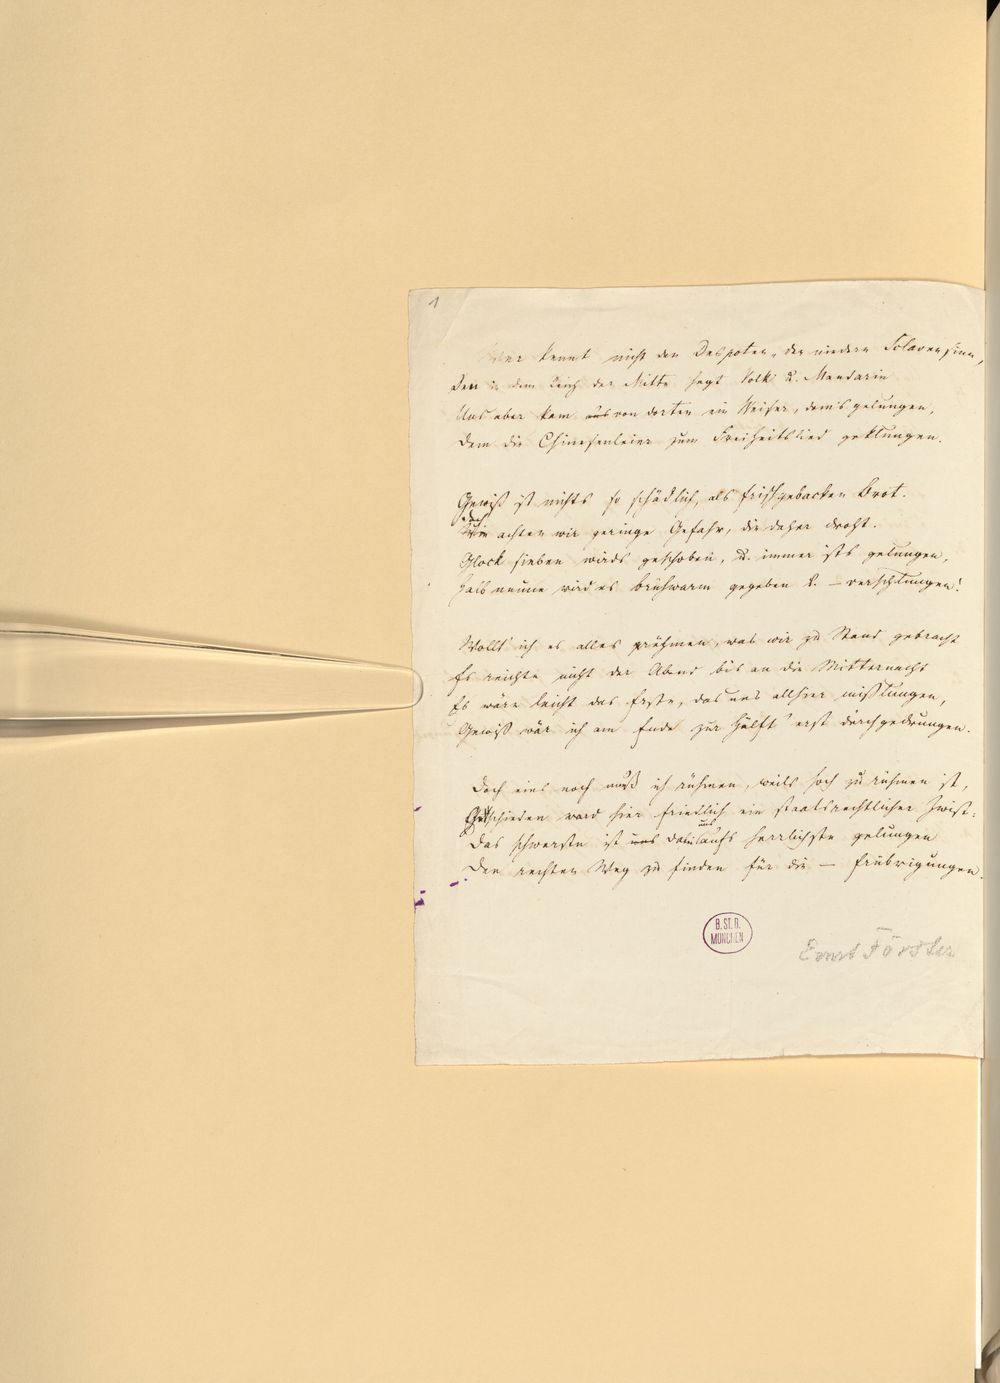 1
Wer kennt nicht den Despoten, den niedern Sclavensinn,
Den in dem Reich der Mitte hegt Volk u. Mandarin
Uns aber kam aus von dorten ein Weiser, dem's gelungen,
Dem die Chinesenleier zum Freiheitslied geklungen.
Gewiß ist nichts so schädlich, als frischgebacken Brot.
Doch
Wir achten wir geringe Gefahr, die daher droht.
Glock sieben wirds geschoben, u. immer ists gelungen,
Halb neune wird es brühwarm gegeben u. – verschlungen!
Wollt' ich es alles rühmen, was wir zu Stand gebracht
Es reichte nicht der Abend bis an die Mitternacht
Es wäre leicht das Erste, das uns allhier mißlungen,
Gewiß wär ich am Ende zur Hälft' erst durchgedrungen.
Doch eins noch muß ich rühmen, weils hoch zu rühmen ist,
Geschieden ward hier friedlich ein staatsrechtlicher Zwist:
uns
Das schwerste ist uns dabei aufs herrlichste gelungen
Den rechten Weg zu finden für die – Erübrigungen.
B. ST. B.
MÜNCHEN
Ernst Förster